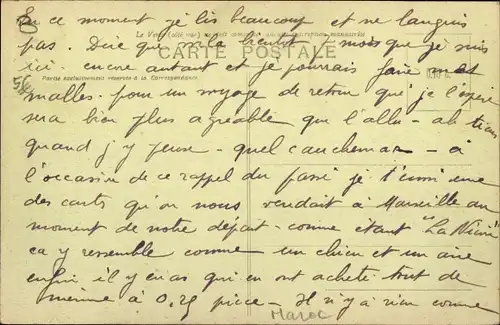 En ce moment je lis beaucoup et ne languis
CARTE POSTALE
pas. Dire que voilà bientôt mois que je suis
ici. encore autant et je pourrais faire mes
Partie exclusivement réservée à la Correspondance.
malles. pour un voyage de retour que je l'espère
sera bien plus agréable que l'allu - ah tiens
quand j'y pense - quel cauchemar - à
l'occasion de ce rappel du passé je une
des carts qu'on nous vendait à Marseille au
moment de notre départ - comme étant "La
ça y ressemble comme un chien et un âne
enfin il y en as qui en ont acheté tout de
même à 0,25 pièce - Il n'y a rien comme
Maroc